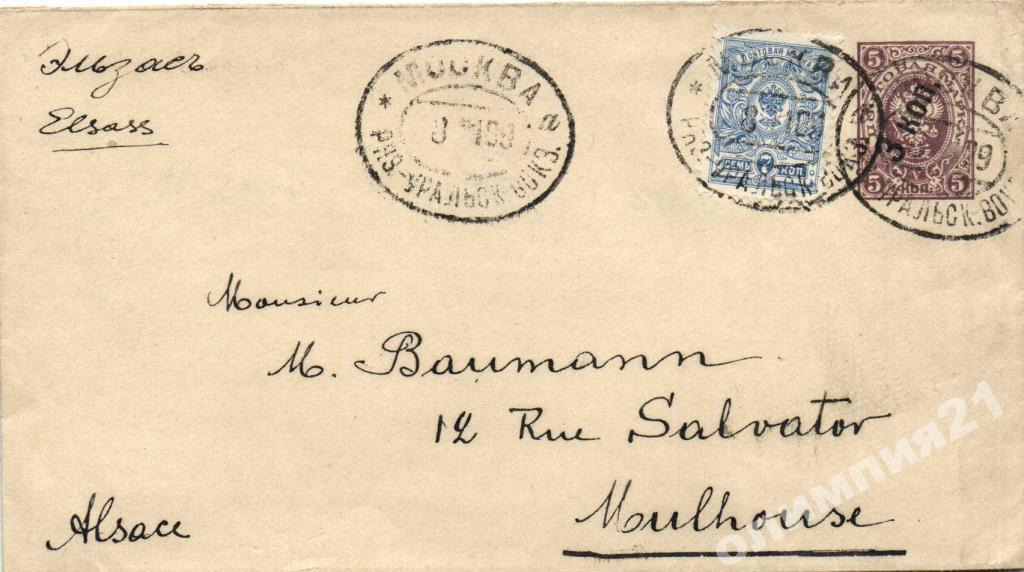 Эльзасъ
Elsass
МОСКВА
Ряз.-УРАЛЬСК. ВОКЗ.
ПОЧТОВАЯ МАРКА
7 КОП.
5 5
3 КОП.
5 КОП. 5
УРАЛЬСК. ВОК
Monsieur
M. Baumann
12 Rue Salvator
Mulhouse
Alsace
олимпия21